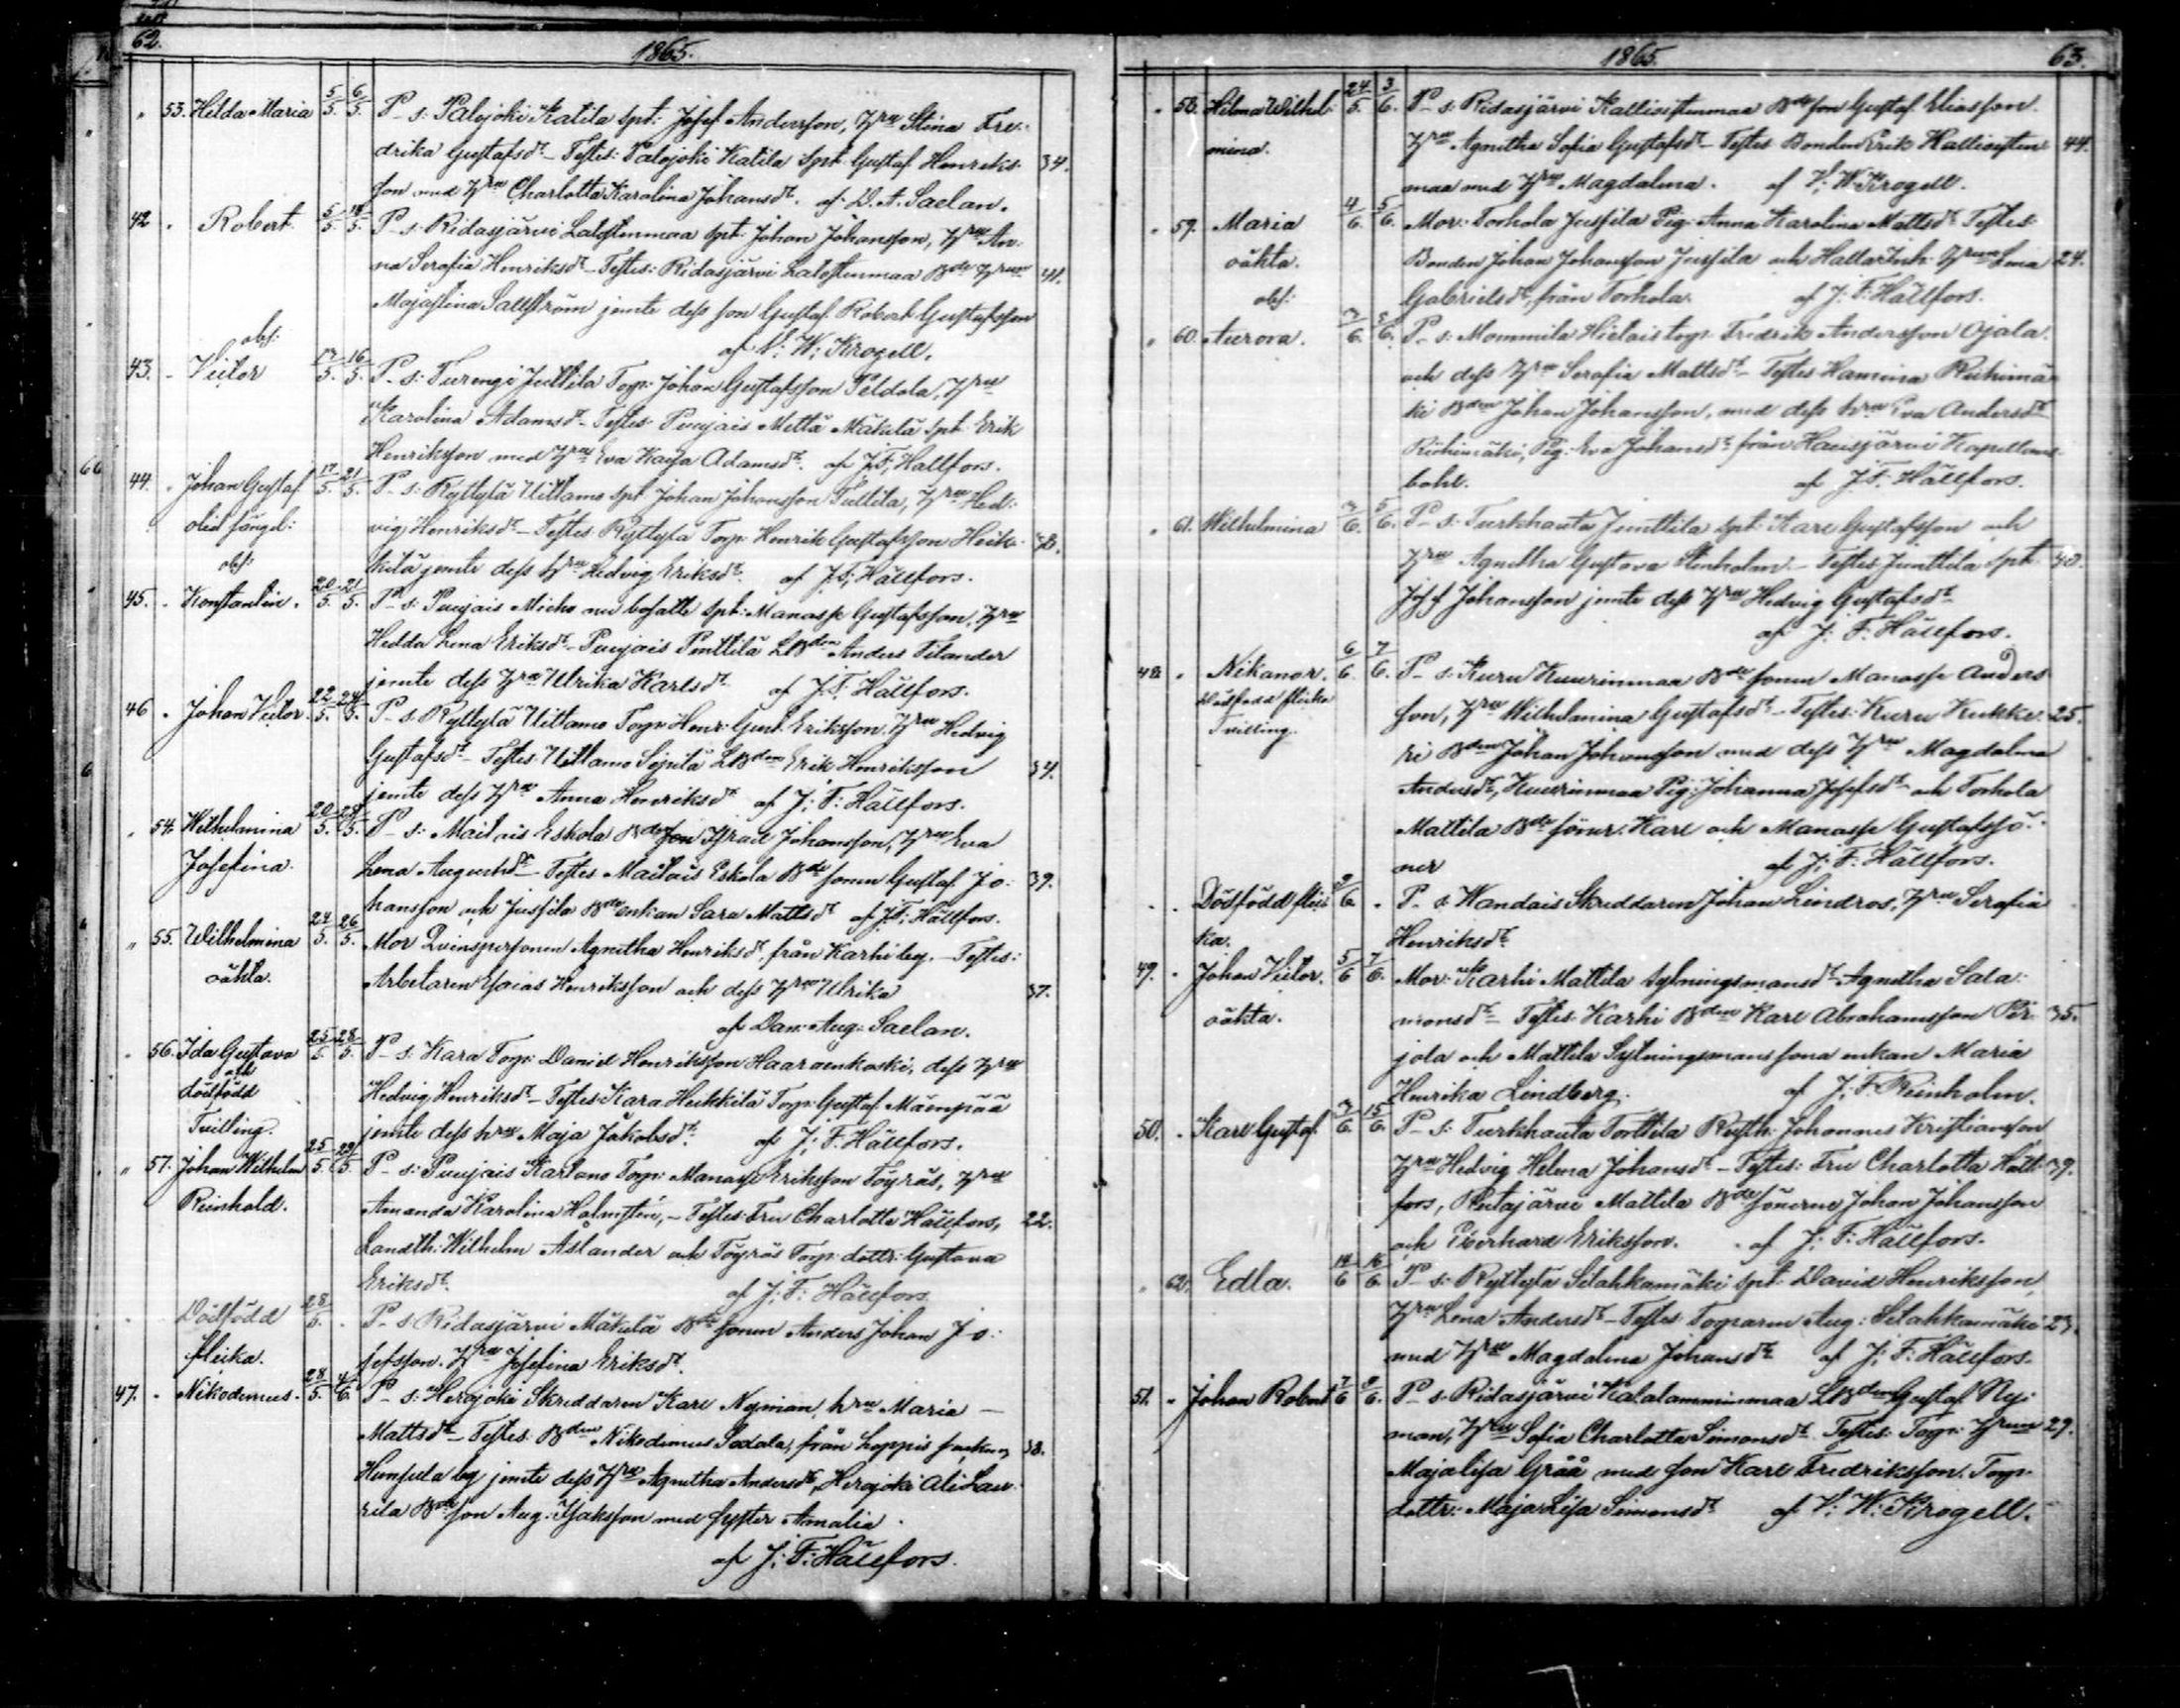 62.
1865.
53. Hilda Maria 5/5 6/5 P-s: Palojoki Katila spt: Josef Andersson, Hru Stina Fre-
drika Gustafsdt - Testes: Palojoki Katila Spt: Gustaf Henriks- 34.
son med Hru Charlotta Karolina Johansdt. af D. A. Saelan.
42. Robert 5/5 P-s: Ridasjärvi Latostenmaa spt: Johan Johansson, Hru An-
na Serafia Henriksdt - Testes: Ridasjärvi Latostenmaa Bde Hrun 41.
Majastina Sallström jemte dess son Gustaf Robert Gustafsson
obs: af V: W: Krogell.
43. Victor 16/5 P-s: Turengi Juttila Torp: Johan Gustafsson Peldola, Hru
Karolina Adamsdt - Testes: Puujais Mettä Mäkilä Spt: Erik
Henriksson med Hru Eva Kaisa Adamsdt. af J: F: Hällfors.
44. Johan Gustaf 17/5 21/5 P-s: Ryttylä Uittamo Spt: Johan Johansson Tullila, Hru Hed-
vig Henriksdt - Testes Ryttylä Torp: Henrik Gustafsson Heik-
obs: kilä jemte dess hru Hedvig Eriksdt. af J: F: Hällfors.
45. Konstantin. 20/5 21/5 P-s: Puujais Micko spt: Manasse Gustafsson, Hru
Hedda Lena Eriksdt - Puujais Penttilä LBden Anders Tilander
jemte dess Hru Ulrika Karlsdt af J: F: Hällfors.
46. Johan Victor. 22/5 24/5 P-s: Ryttylä Uittamo Torp: Henr: Gust. Eriksson, Hru Hedvig
Gustafsdt - Testes Uittamo Sipilä LBden Erik Henriksson 34.
jemte dess Hru Anna Henriksdt af J: F: Hällfors.
54. Wilhelmina 20/5 28/5 P-s: Mailais Eskola Bdeson Israel Johansson, Hru Eva
Josefina. Lena Augustsdt - Testes Mailais Eskola Bde sonen Gustaf Jo- 39.
hansson och Jussila Bde enkan Sara Mattsdt af J: F: Hällfors.
55. Wilhelmina 24/5 26/5 Mor Qvinspersonen Agnetha Henriksdt, från Karhi by. - Testes:
oäkta. Arbetaren Esaias Henriksson och dess Hru Ulrika 37.
af Dan: Aug: Saelan.
56. Ida Gustava 25/5 28/5 P-s: Kara Torp: Daniel Henriksson Haaraenkoski, dess Hru
och
dödfödd Hedvig Henriksdt - Testes Kara Heikkilä Torp: Gustaf Mäenpää
Tvilling. jemte dess hru Maja Jakobsdt. af J: F: Hällfors.
57. Johan Wilhelm 25/5 29/5 P-s: Puujais Kartano Torp: Manasse Eriksson Töyräs, Hru
Reinhold. Amanda Karolina Holmstén, - Testes: Fru Charlotta Hällfors, 22.
Landth: Wilhelm Aslander och Töyräs Torp: dottr: Gustava
Eriksdt. af J: F: Hällfors.
Dödfödd 28/5 P-s: Ridasjärvi Mäkilä Bde sonen Anders Johan Jo-
flicka. sefsson. Hru Josefina Eriksdt.
47. Nikodemus. 28/5 4/6 P-s: Herajoki Skräddaren Karl Nyman, hru Maria
Mattsdt - Testes: Bden Nikodemus Sodala, från Loppis socken, 38.
Hunsula by jemte dess Hru Agnetha Andersdt, Herajoki Ali Lau-
rila Bde son Aug. Isaksson med syster Amalia.
af J: F: Hällfors.
1865. 63.
58. Hilma Wilhel- 24/5 3/6 P-s: Ridasjärvi Kalliostenmaa Bde son Gustaf Eliasson.
mina. Hru Agnetha Sofia Gustafsdt - Testes Bonden Erik Kalliosten- 44.
maa med Hru Magdalena. af V: W: Krogell.
59. Maria 4/6 5/6 Mor: Torhola Jussila Pig: Anna Karolina Mattsdt Testes
oäkta. Bonden Johan Johansson Jussila och Hrun Lena 24.
obs: Gabrielsdt, från Torhola. af J: F: Hällfors.
60. Aurora. P-s: Mommila Hietais torp: Fredrik Andersson Ojala.
och dess Hru Serafia Mattsdt - Testes Hamina Riihimä-
ki Bden Johan Johansson, med dess hru Eva Andersdt
Riihimäki, Pig: Eva Johansdt från Hausjärvi Kapellans-
bohl. af J: F: Hällfors.
61. Wilhelmina 3/6 5/6 P-s: Turkhauta Junttila Spt: Karl Gustafsson och
Hru Agnetha Gustava Stenholm. - Testes Junttila Spt: 40.
Josef Johansson jemte dess Hru Hedvig Gustafsdt
af J: F: Hällfors.
48. Nikanor. 6/6 7/6 P-s: Kuru Kuurinmaa Bde sonen Manasse Anders-
Dödfödd flicka son, Hru Wilhelmina Gustafsdt - Testes: Kuru Kukke- 25.
Tvilling. ri Bden Johan Johansson med dess Hru Magdalena
Andersdt, Kuurinmaa Pig: Johanna Josefsdt och Torhola
Mattila Bde söner: Karl och Manasse Gustafssö-
ner af J: F: Hällfors.
Dödfödd flic- P-s: Wandais Skräddaren Johan Lindros, Hru Serafia
ka. Henriksdt.
49. Johan Victor. 5/6 7/6 Mor: Karhi Mattila Sytningsmansdt Agnetha Salo-
oäkta. monsdt - Testes: Karhi Bden Karl Abrahamsson Pir- 35.
jola och Mattila Sytningsmans sona enkan Maria
Henrika Lindberg. af J: F: Reinholm.
50. Karl Gustaf. 3/6 15/6 P-s: Turkhauta Torttila Rusth: Johannes Kristiansson
Hru Hedvig Helena Johansdt - Testes: Fru Charlotta Häll- 39.
fors, Mattila Bde sönerne Johan Johansson
och Everhard Eriksson. af J: F: Hällfors.
62. Edla. 14/6 16/6 P-s: Ryttylä Selahkamäki spt: David Henriksson,
Hru Lena Andersdt - Testes Torparen Aug: Selahkamäki 23.
med Hru Magdalena Johansdt af J: F: Hällfors.
51. Johan Robert 7/6 P-s: Ridasjärvi Kalalamminmaa LBden Gustaf Ny-
man, Hru Sofia Charlotta Simonsdt. Testes: Torp: Hrun 29.
Majalisa Gråå med son Karl Fredriksson. Torp:
dottr: Maja Lisa Simonsdt af V: W: Krogell.